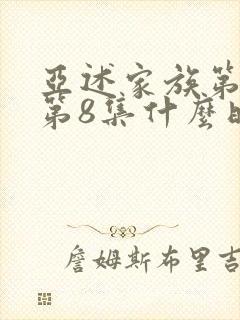 亞述家族第
第8集什麼時
詹姆斯布里吉